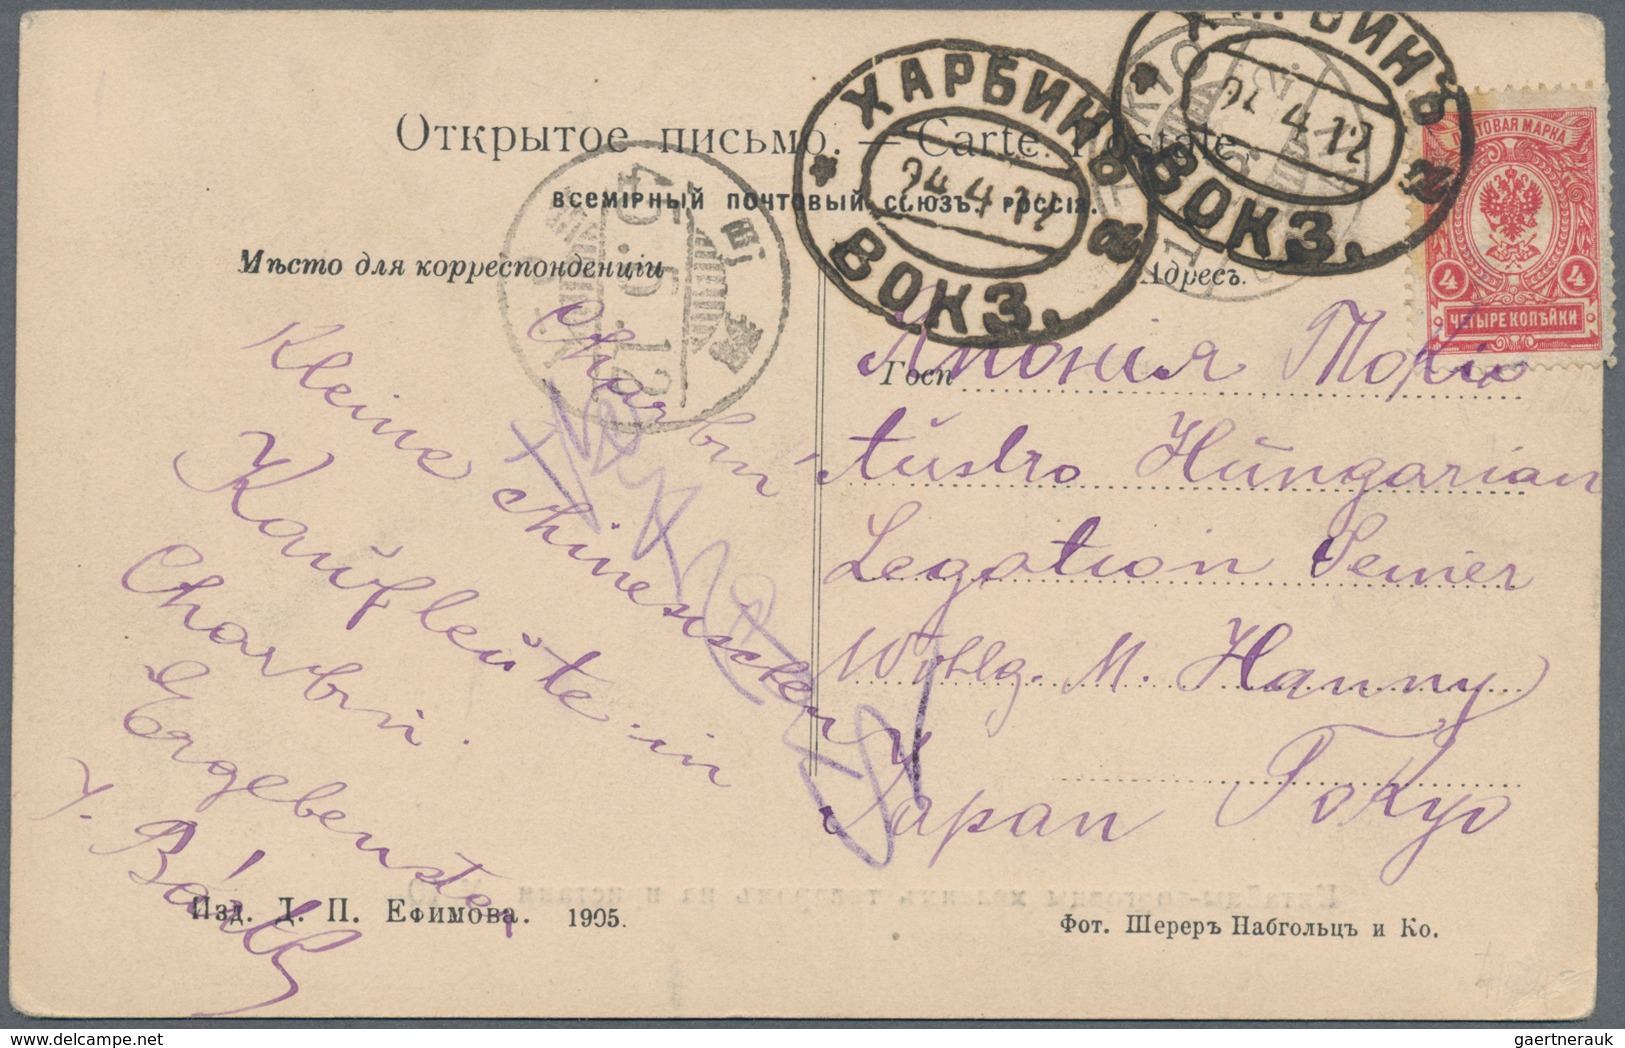 Открытое письмо. — Carte Postale
всемірный почтовый союзъ. россія.
Мѣсто для корреспонденціи
Адресъ.
ХАРБИНЪ
24.4.12
ВОКЗ.
ХАРБИНЪ
24.4.12
ВОКЗ.
ПОЧТОВАЯ МАРКА
4 4
ЧЕТЫРЕ КОПѢЙКИ
45.5.12
Charbin
Kleine chinesischen
Kaufleute in
Charbin.
Ergebenster
Госп
Японія Токіо
Austro Hungarian
Legation Seiner
Wohlg. M. Hanny
Japan Tokyo
Изд. Д. П. Ефимова. 1905.
Фот. Шереръ Набгольцъ и Ко.
gaertnerauk